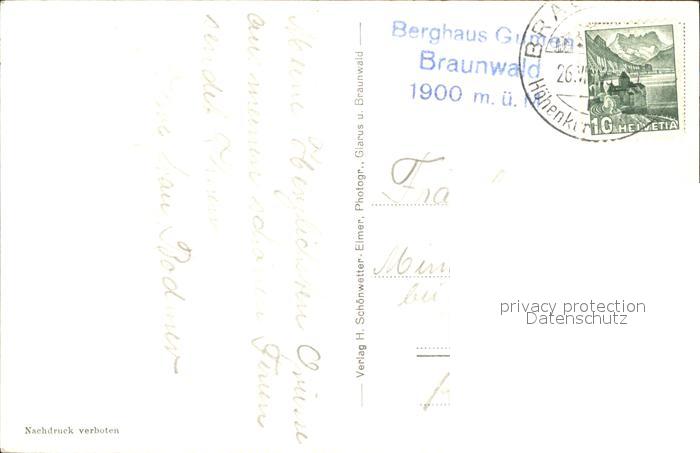 Berghaus Gumen
Braunwald
1900 m. ü. M
BRA
26.VI
Höhenku
10 HELVETIA
Meine Herzlichsten Grüsse
an meinen schönen Ferien
sendet Ihnen
Bodmer
Verlag H. Schönwetter-Elmer, Photogr., Glarus u. Braunwald
Frä
bei
privacy protection
Datenschutz
Nachdruck verboten